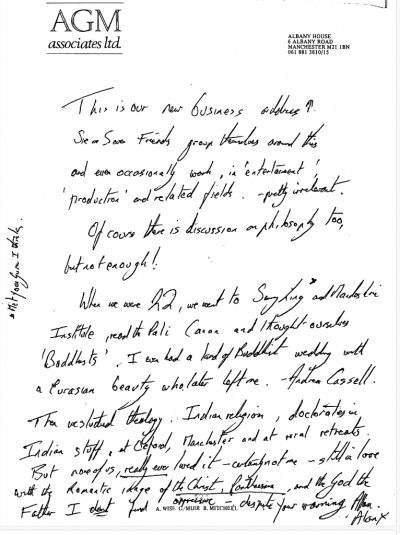 AGM
associates ltd.
ALBANY HOUSE
6 ALBANY ROAD
MANCHESTER M21 1BN
061 881 3810/15
This is our new business address ↑.
Six or Seven Friends group themselves around this
and even occasionally work, in 'entertainment',
'production' and related fields. - pretty irrelevant.
Of course there is discussion on philosophy too,
but not enough!
When we were 22, we went to and Manchester
Institute, read the Pali Canon and thought ourselves
'Buddhists'. I even had a kind of Buddhist wedding with
a Eurasian beauty who later left me. - Andrea Cassell.
Then we studied theology, Indian religion, doctorates in
Indian stuff, at Oxford, Manchester and at rural retreats.
But none of us, really ever lived it - certainly not me - still a love
with the Romantic image of the Christ, Pantheism, and the God the
Father I don't find oppressive - despite your warning Allan.
A. WISE G. MUIR B. MITCHELL
Alan x